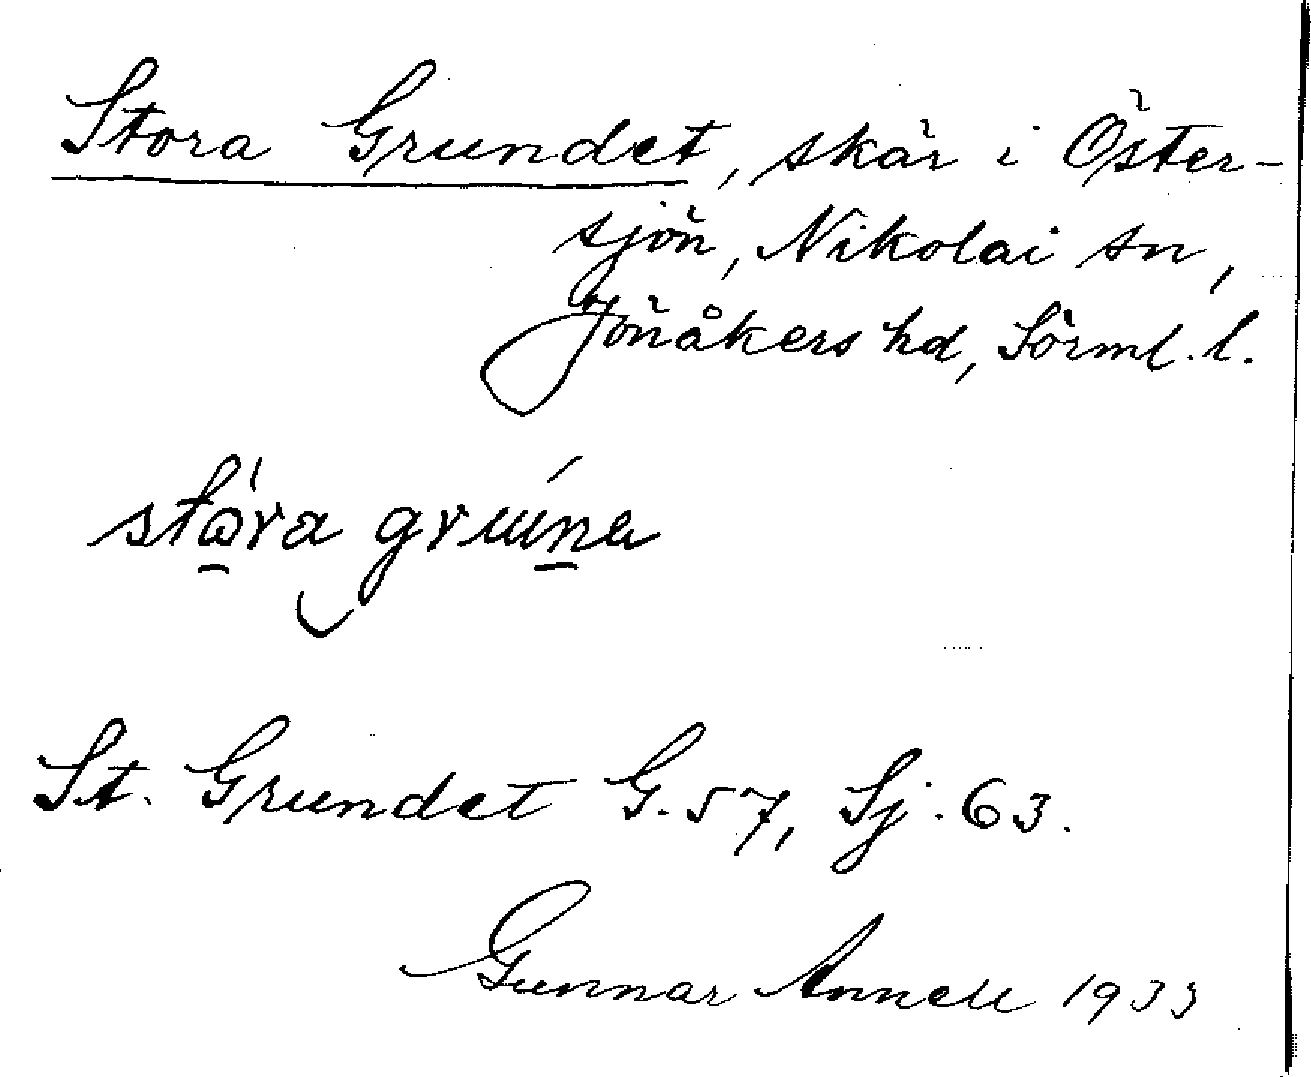 Stora Grundet, skär i Öster-
sjön, Nikolai sn,
Jönåkers hd, Sörml. l.
stó̱ra grúṉa
St. Grundet G. 57, Sj. 63.
Gunnar Annell 1933